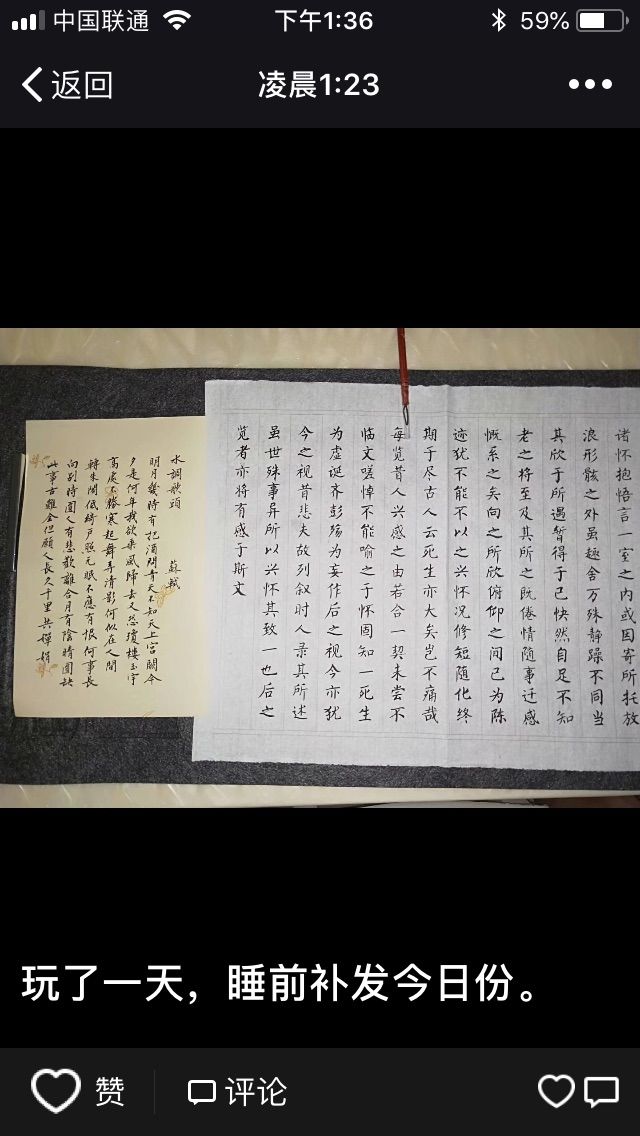 中国联通 下午1:36 59%
返回 凌晨1:23
诸怀抱悟言一室之内或因寄所托放
浪形骸之外虽趣舍万殊静躁不同当
其欣于所遇暂得于己快然自足不知
老之将至及其所之既倦情随事迁感
慨系之矣向之所欣俯仰之间已为陈
迹犹不能不以之兴怀况修短随化终
期于尽古人云死生亦大矣岂不痛哉
每览昔人兴感之由若合一契未尝不
临文嗟悼不能喻之于怀固知一死生
为虚诞齐彭殇为妄作后之视今亦犹
今之视昔悲夫故列叙时人录其所述
虽世殊事异所以兴怀其致一也后之
览者亦将有感于斯文
水調歌頭 蘇軾
明月幾時有把酒問青天不知天上宮闕今
夕是何年我欲乘風歸去又恐瓊樓玉宇
高處不勝寒起舞弄清影何似在人間
轉朱閣低綺户照无眠不應有恨何事長
向別時圓人有悲歡離合月有陰晴圓缺
此事古難全但願人長久千里共嬋娟
玩了一天，睡前补发今日份。
赞 评论